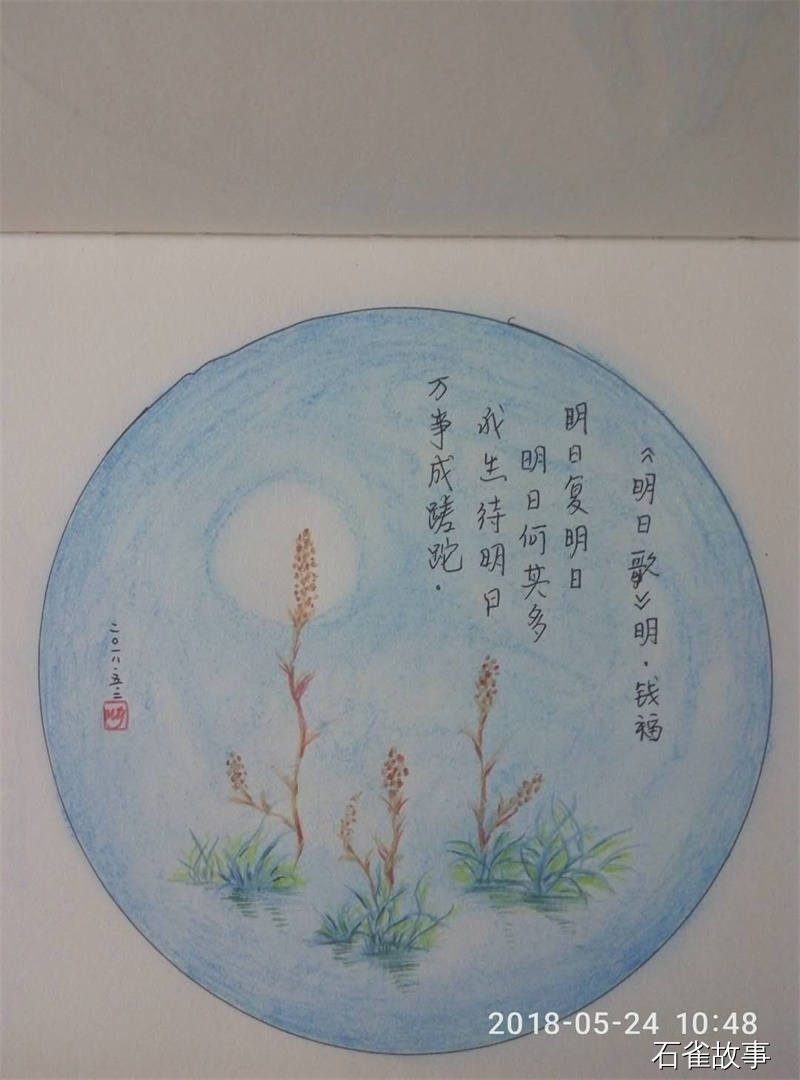 《明日歌》明·钱福
明日复明日
明日何其多
我生待明日
万事成蹉跎.
二〇一八.五.二
2018-05-24 10:48
石雀故事